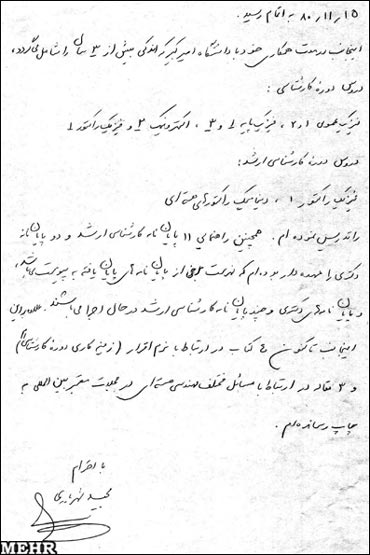 ۸۰/۱۱/۱۵ به اتمام رسید.
اینجانب در مدت همکاری خود با دانشگاه امیرکبیر که اندکی بیش از ۳ سال را شامل می‌گردد،
دروس دوره کارشناسی :
فیزیک عمومی ۱ و ۲ ، فیزیک پایه ۱ و ۳ ، الکترونیک ۳ و فیزیک راکتور ۱
دروس دوره کارشناسی ارشد :
فیزیک راکتور ۱ ، دینامیک راکتورهای هسته‌ای
را تدریس نموده‌ام . همچنین راهنمایی ۱۱ پایان نامه کارشناسی ارشد و دو پایان نامه
دکتری را عهده‌دار بوده‌ام که لیست پایان نامه‌های پایان یافته به پیوست می‌باشد،
و پایان نامه‌های دکتری و چند پایان نامه کارشناسی ارشد در حال اجرا می‌باشند . علاوه براین
اینجانب تاکنون ۴ کتاب در ارتباط با نرم افزار (زمینه کاری دوره کارشناسی‌ام)
و ۳ مقاله در ارتباط با مسائل مختلف مهندسی هسته‌ای در مجلات معتبر بین المللی به
چاپ رسانده‌ام .
با احترام
مجید شهریاری
MEHR